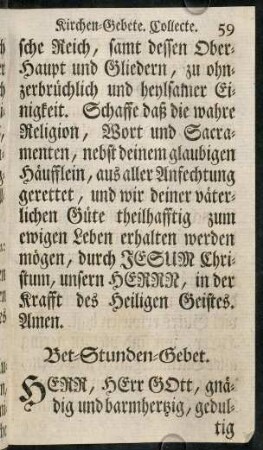 Kirchen-Gebete. Collecte. 59
sche Reich, samt dessen Ober-
Haupt und Gliedern, zu ohn-
zerbrüchlich und heylsamer Ei-
nigkeit. Schaffe daß die wahre
Religion, Wort und Sacra-
menten, nebst deinem glaubigen
Häufflein, aus aller Anfechtung
gerettet, und wir deiner väter-
lichen Güte theilhafftig zum
ewigen Leben erhalten werden
mögen, durch JESUM Chri-
stum, unsern HERRN, in der
Krafft des Heiligen Geistes.
Amen.
Bet-Stunden-Gebet.
HERR, HErr GOtt, gnä-
dig und barmhertzig, gedul-
tig